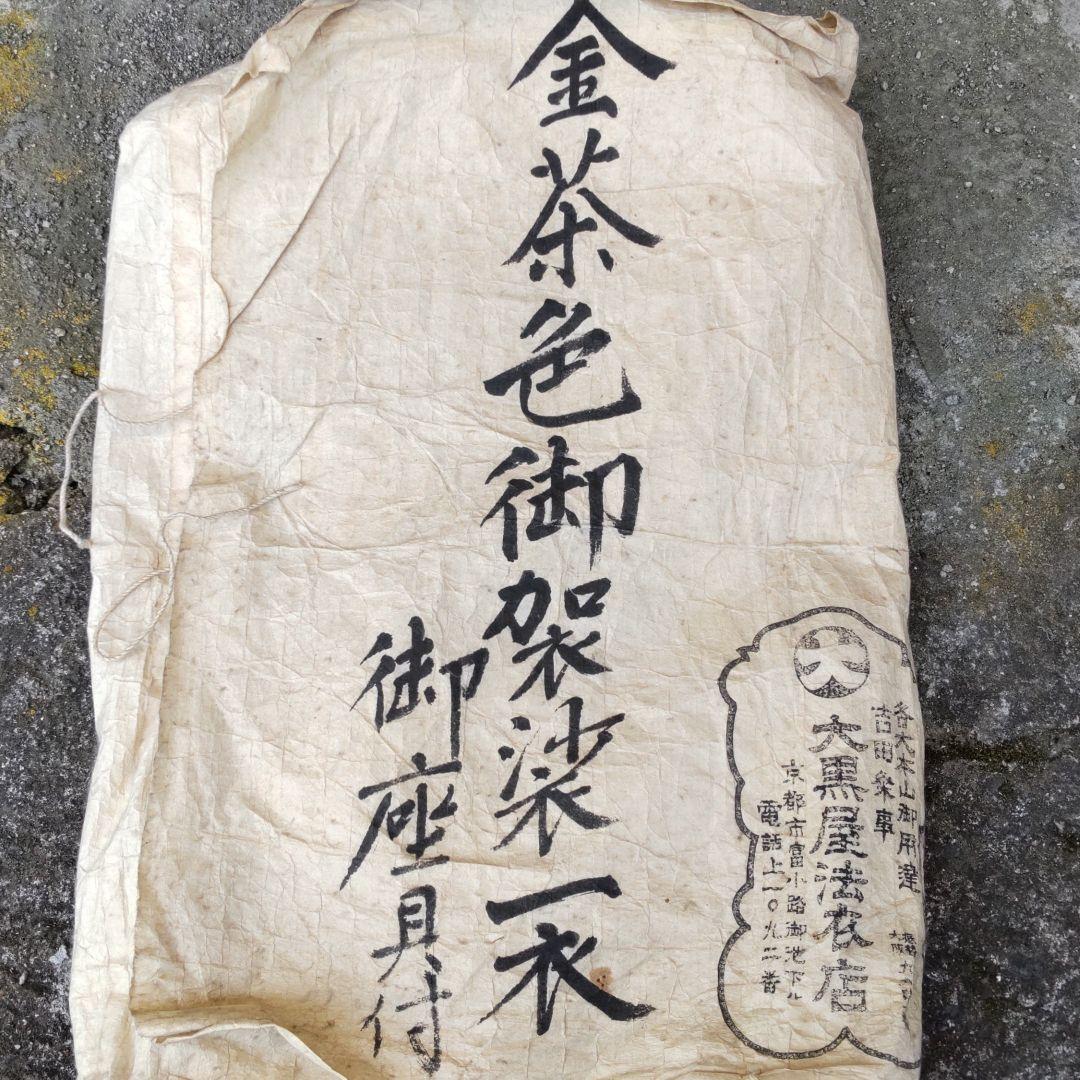 各大本山御用達
吉田粂事
大黒屋法衣店
京都市富小路御池下ル
電話上一〇九二番
金茶色御袈裟一衣
御座具付